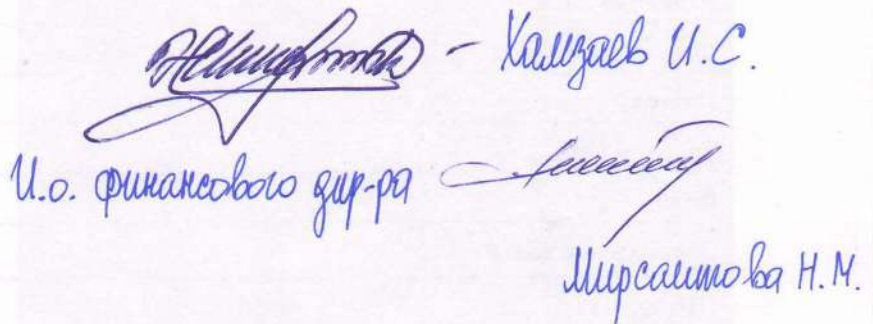 - Хамзаев И.С.
И.о. финансового дир-ра
Мирсаитова Н.М.